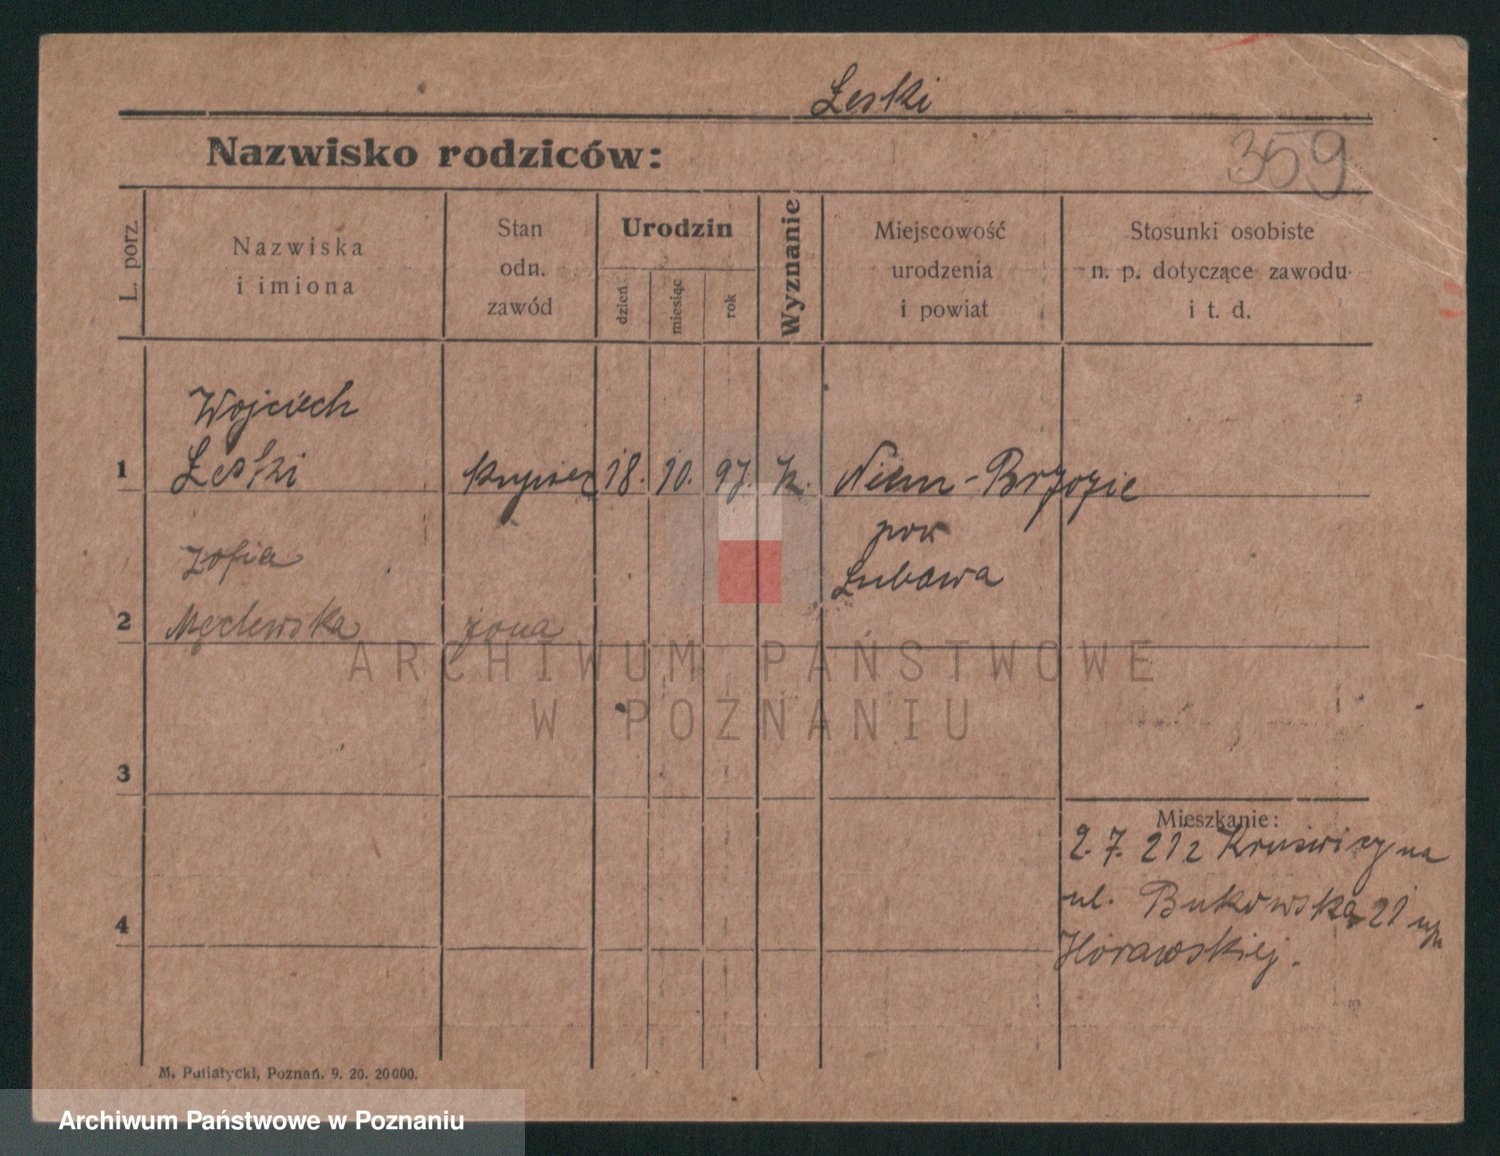 Leski
359
Nazwisko rodziców:
L. porz.
Nazwiska
i imiona
Stan
odn.
zawód
Urodzin
dzień
miesiąc
rok
Wyznanie
Miejscowość
urodzenia
i powiat
Stosunki osobiste
n. p. dotyczące zawodu
i t. d.
Wojciech
1 Leski kupiec 18. 10. 97. k. Niem-Brzozie
pow
Lubawa
Zofia
2 żona
ARCHIWUM PAŃSTWOWE
W POZNANIU
3
Mieszkanie:
2. 7. 21 z Kruświcy na
ul. Bukowska 21
4
M. Putiatycki, Poznań. 9. 20. 20000.
Archiwum Państwowe w Poznaniu